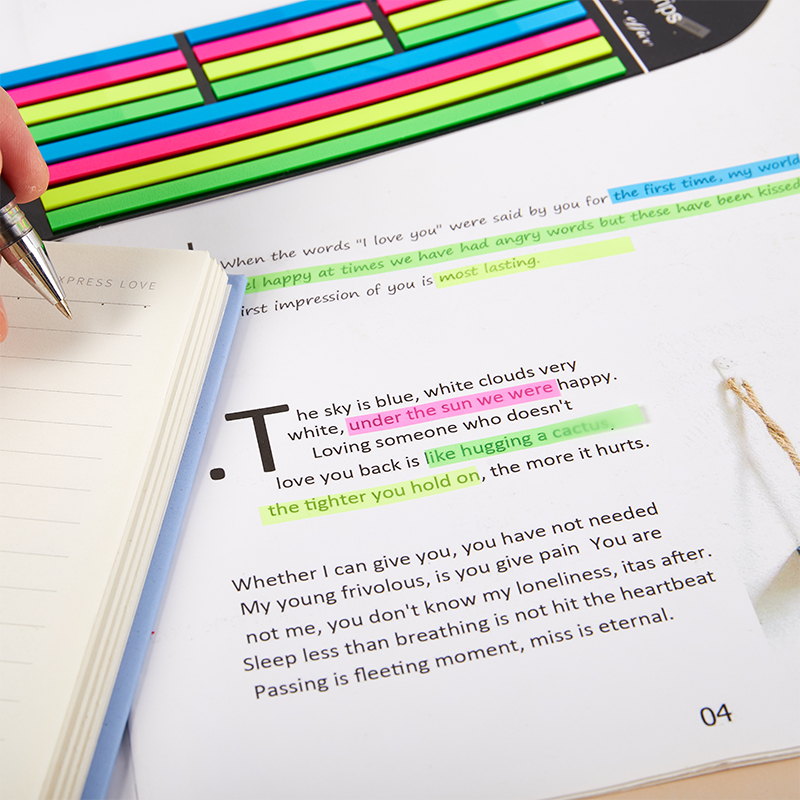 office
When the words "I love you" were said by you for the first time, my world
happy at times we have had angry words but these have been kissed
first impression of you is most lasting.
EXPRESS LOVE
.The sky is blue, white clouds very
white, under the sun we were happy.
Loving someone who doesn't
love you back is like hugging a cactus.
the tighter you hold on, the more it hurts.
Whether I can give you, you have not needed
My young frivolous, is you give pain You are
not me, you don't know my loneliness, itas after.
Sleep less than breathing is not hit the heartbeat
Passing is fleeting moment, miss is eternal.
04